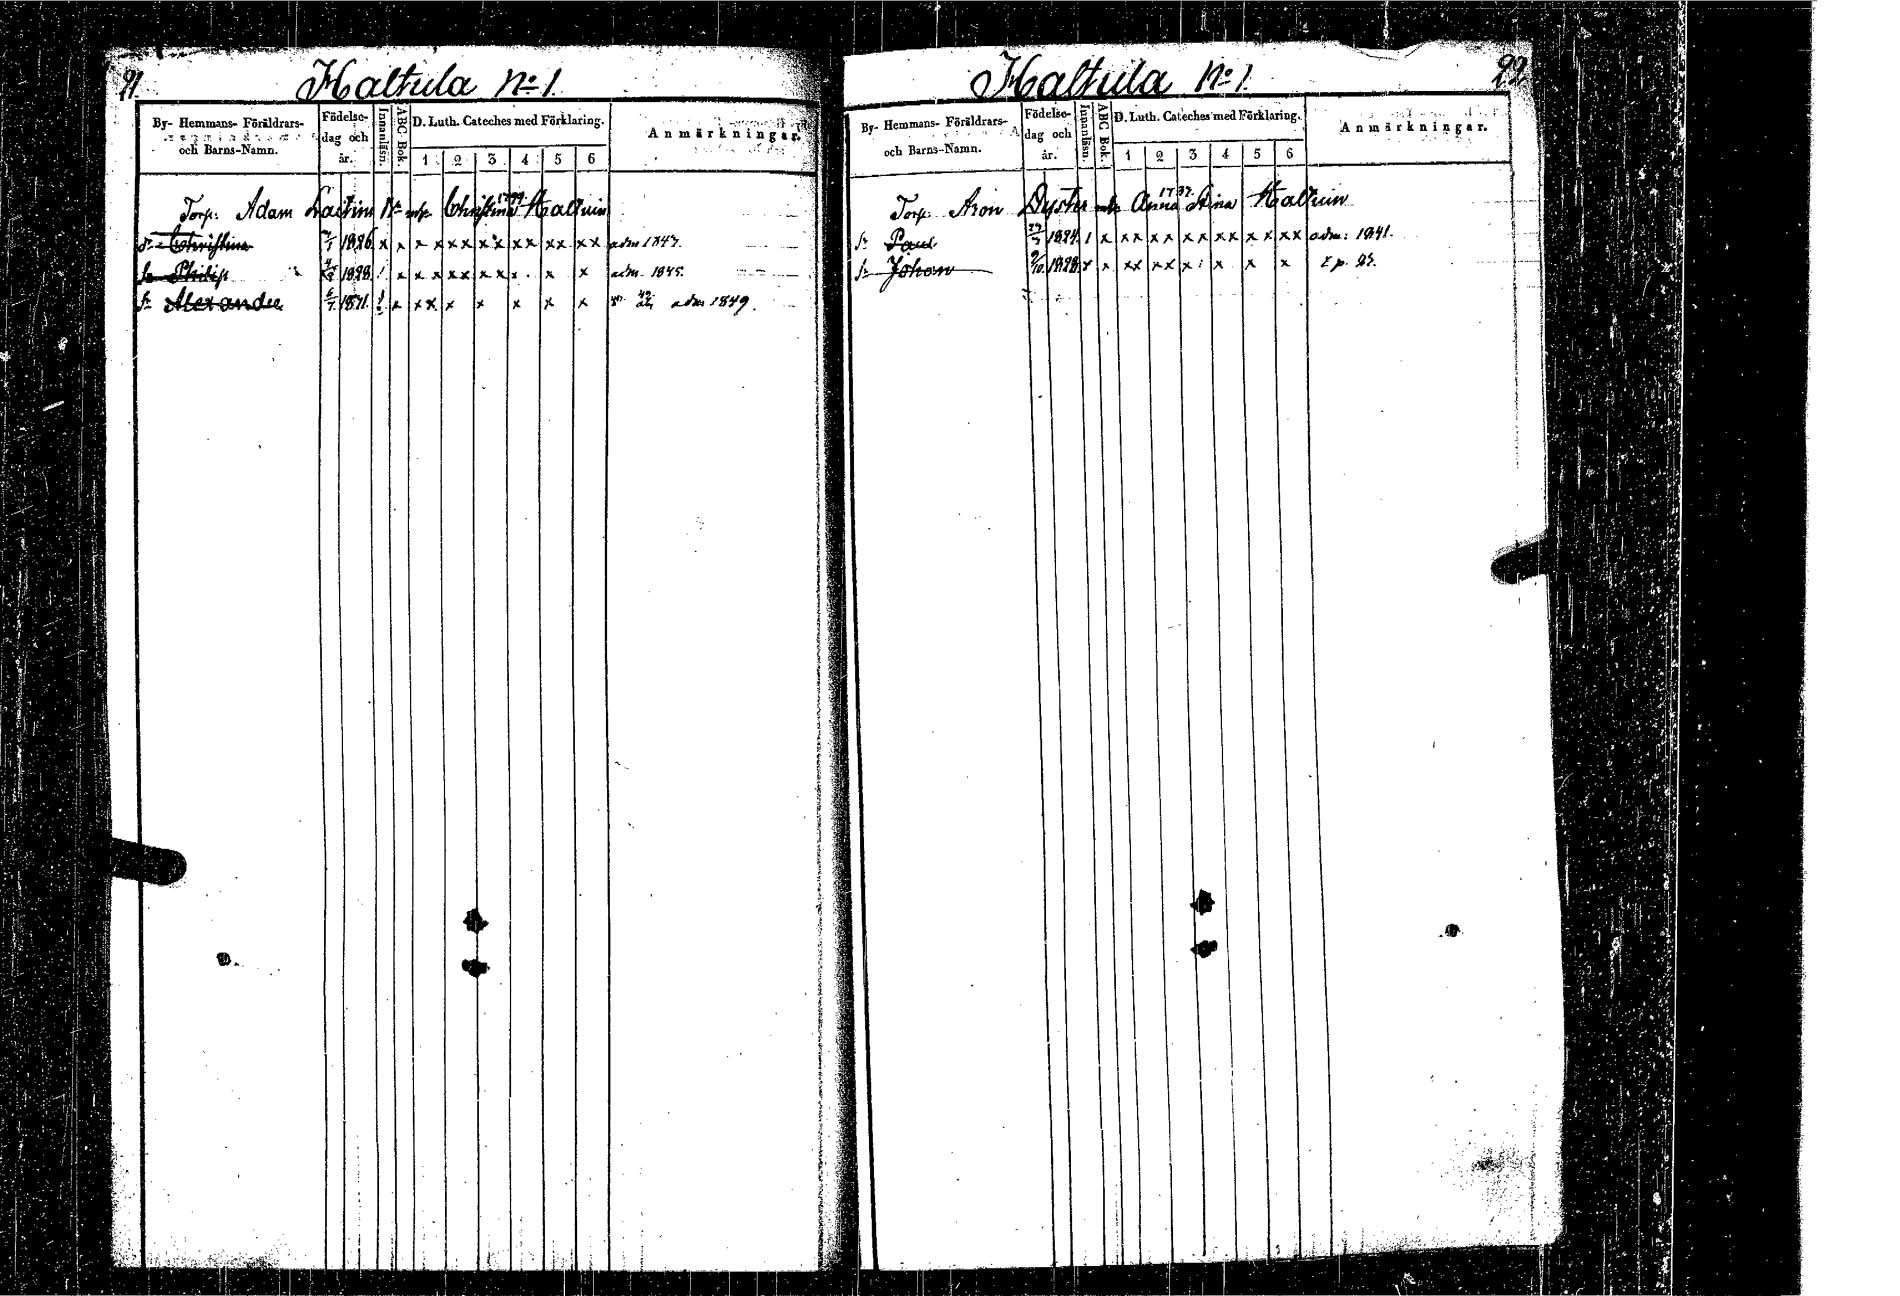 21
Haltula No 1.
By- Hemmans- Föräldrars- och Barns-Namn.
Födelse- dag och år.
Innanläsn.
ABC Bok.
D. Luth. Cateches med Förklaring.
1 2 3 4 5 6
Anmärkningar.
Torp: Adam Christina
Christina 1826. x x x x x x x x x x x x x x adm 1843.
Sn Philip 1828. x x x x x x x x x adm. 1845.
Sn Alexander x x x x x x x x adm 1849.
Haltula No 1.
22
By- Hemmans- Föräldrars- och Barns-Namn.
Födelse- dag och år.
Innanläsn.
ABC Bok.
D. Luth. Cateches med Förklaring.
1 2 3 4 5 6
Anmärkningar.
Torp. Aron Dyster Anna Stina
Sn Paul 1824. x x x x x x x x x x x x x adm: 1841.
Sn Johan 1828. x x x x x x x x x